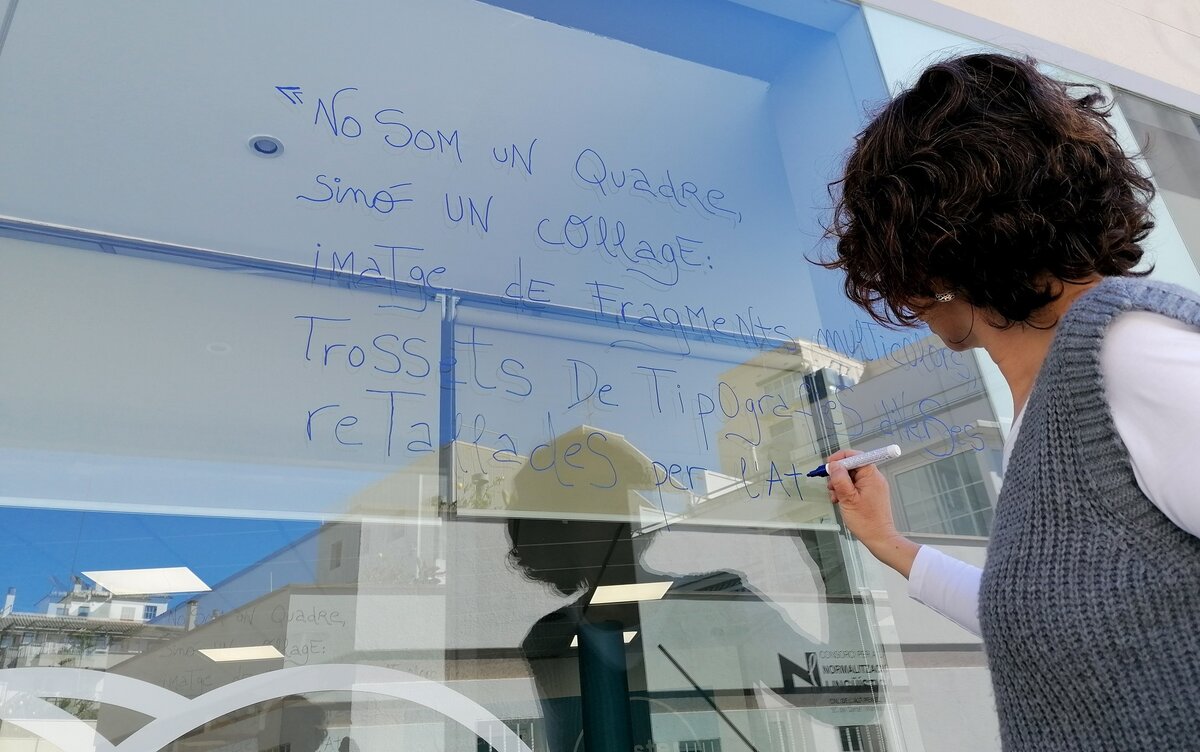 No Som uN Quadre,
sinó UN collage:
imatge de Fragments multicolors,
Trossets De Tipografies diverses
reTallades per l'At
CONSORCI PER A LA
NORMALITZACIÓ
LINGÜÍSTICA
No som uN Quadre,
sinó UN collage:
imatge de